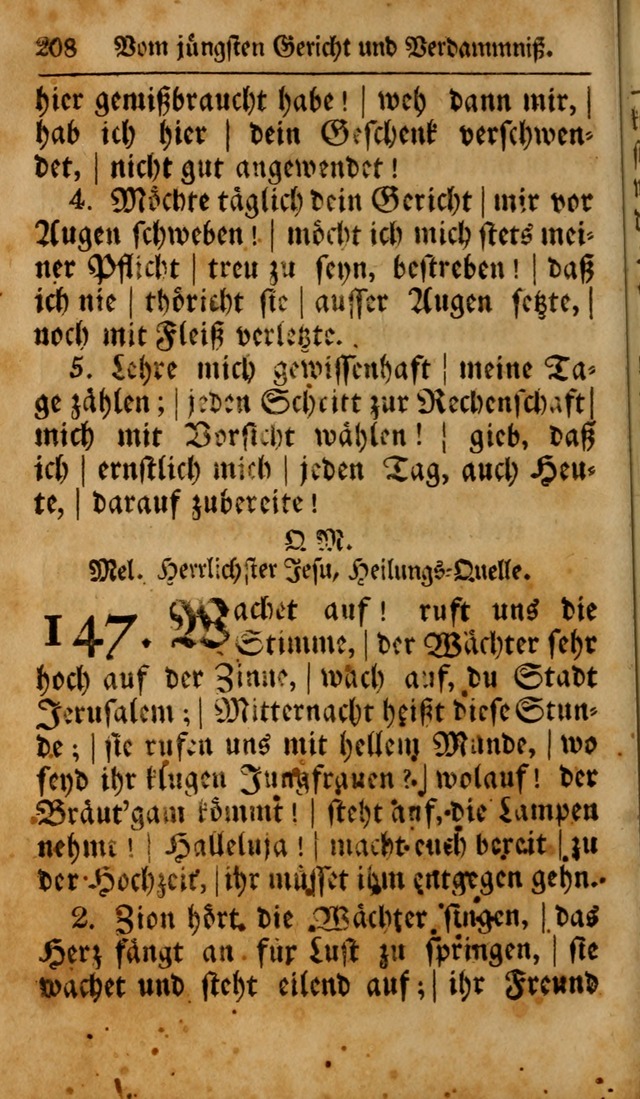 208 Vom jüngsten Gericht und Verdammniß.
hier gemißbraucht habe! | weh dann mir, |
hab ich hier | dein Geschenk verschwen-
det, | nicht gut angewendet!
4. Möchte täglich dein Gericht | mir vor
Augen schweben! | möcht ich mich stets mei-
ner Pflicht | treu zu seyn, bestreben! | daß
ich nie | thöricht sie | ausser Augen setzte, |
noch mit Fleiß verletzte.
5. Lehre mich gewissenhaft | meine Ta-
ge zählen; | jeden Schritt zur Rechenschaft |
mich mit Vorsicht wählen! | gieb, daß
ich | ernstlich mich | jeden Tag, auch Heu-
te, | darauf zubereite!
O. M.
Mel. Herrlichster Jesu, Heilungs-Quelle.
147. Wachet auf! ruft uns die
Stimme, | der Wächter sehr
hoch auf der Zinne, | wach auf, du Stadt
Jerusalem; | Mitternacht heißt diese Stun-
de; | sie rufen uns mit hellem Munde, | wo
seyd ihr klugen Jungfrauen? | wolauf! der
Bräut'gam kömmt! | steht auf, die Lampen
nehmt! | Halleluja! | macht euch bereit | zu
der Hochzeit, | ihr müsset ihm entgegen gehn.
2. Zion hört die Wächter singen, | das
Herz fängt an für Lust zu springen, | sie
wachet und steht eilend auf; | ihr Freund